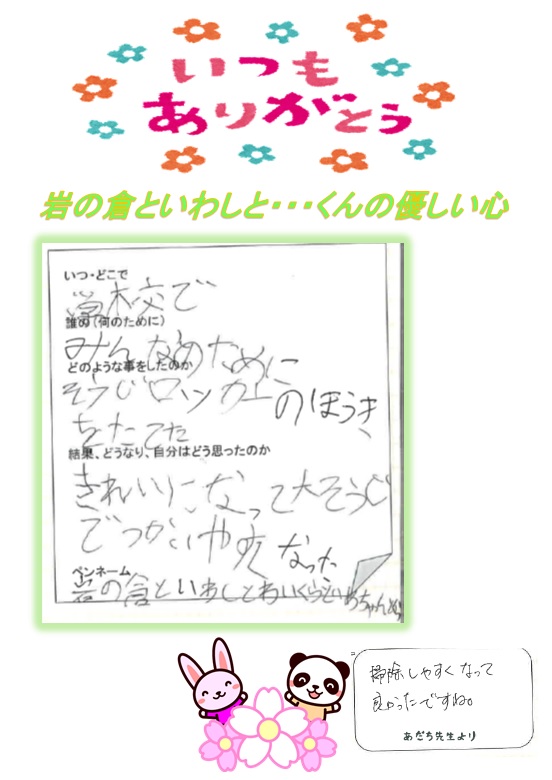 いつも
ありがとう
岩の倉といわしと・・・くんの優しい心
いつ・どこで
学校で
誰が(何のために)
みんなのために
どのような事をしたのか
そうじロッカーのほうき
をたてた
結果、どうなり、自分はどう思ったのか
きれいになって大そうじ
でつかいやすくなった
ペンネーム
岩の倉といわしと
掃除しやすくなって
良かったですね。
あだち先生より